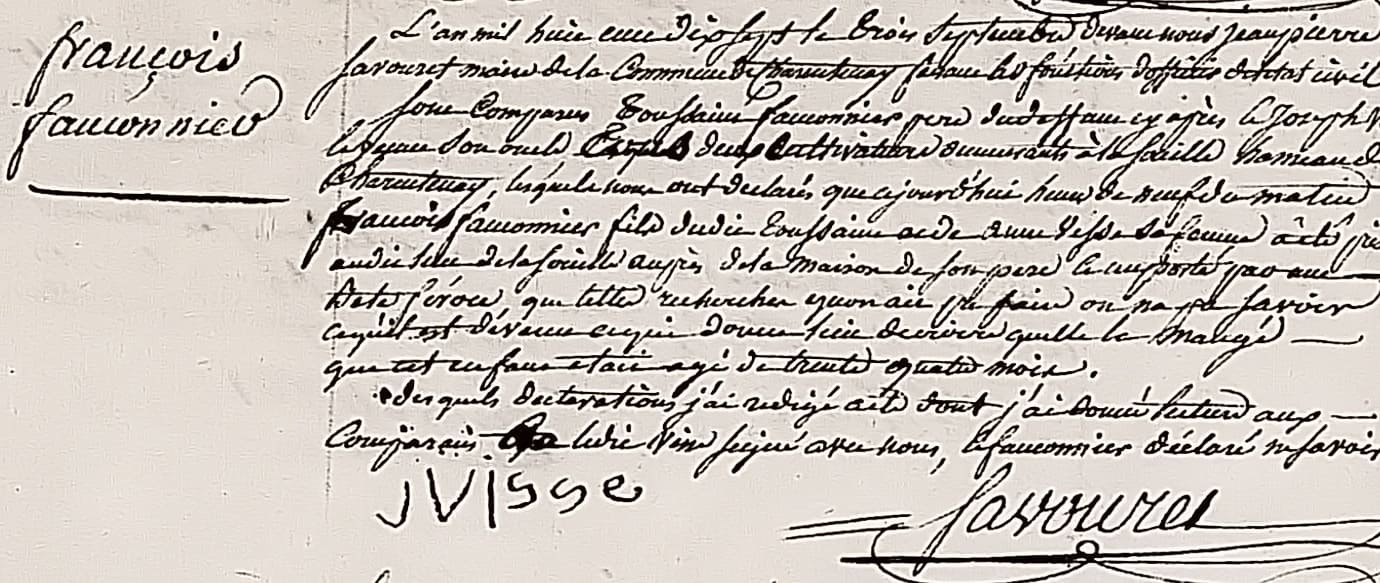 françois
fauconnier
L'an mil huit cent dix sept le trois septembre devant nous jean pierre
savouret maire de la Commune de Charentenay faisant les fonctions d'officier de l'etat civil
sont Comparus Toussaint fauconnier pere du deffunt cy après le Joseph
son oncle deux Cultivateurs demeurants à la hameau de
Charentenay, lesquels nous ont declarés que ajourd'hui heure de neuf du matin
françois fauconnier fils dudit toussaint et de anne visse sa femme à été pris
audit lieu de la auprès de la maison de son pere et emporté par une
bete féroce, que telle recherches qu'on ait pu faire on na pu savoir
ce qu'il est dévenu ce qui donne lieu de croire quelle la mangé
que cet enfant etait agé de trente quatre mois.
desquels declarations j'ai redigé acte dont j'ai donné lecture aux
Comparants ledit signé avec nous, le fauconnier déclaré ne savoir
JVISSE
Savouret